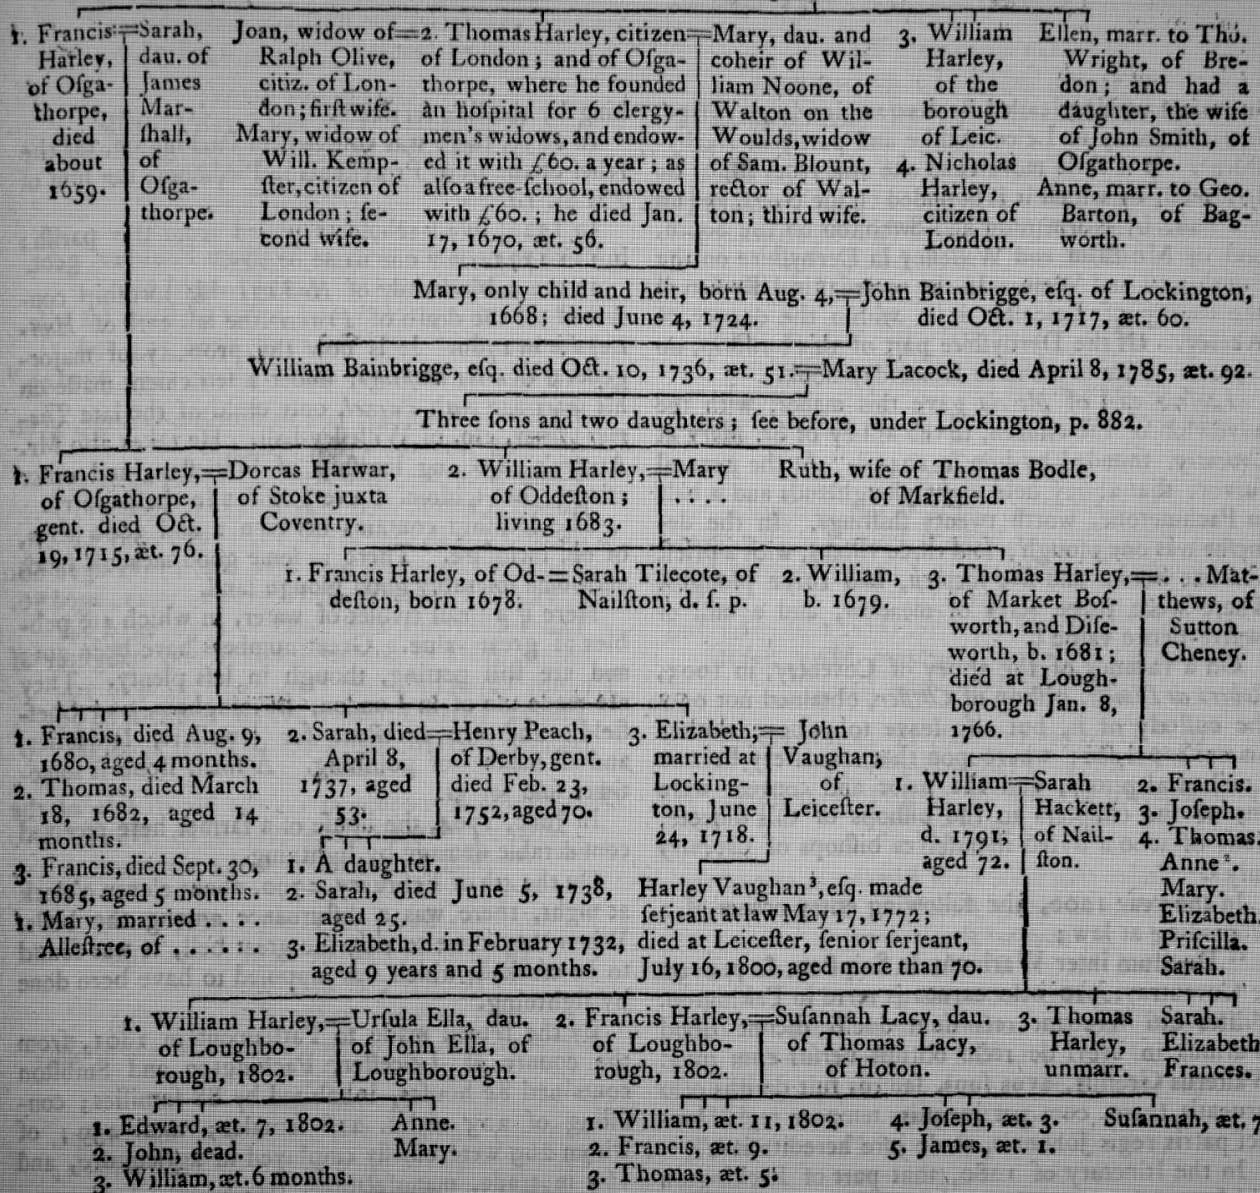 1. Francis
Harley,
of Oſga-
thorpe,
died
about
1659.
Sarah,
dau. of
James
Mar-
ſhall,
of
Oſga-
thorpe.
Joan, widow of
Ralph Olive,
citiz. of Lon-
don; firſt wife.
Mary, widow of
Will. Kemp-
ſter, citizen of
London; ſe-
cond wife.
2. Thomas Harley, citizen
of London; and of Oſga-
thorpe, where he founded
an hoſpital for 6 clergy-
men's widows, and endow-
ed it with £60. a year; as
alſo a free-ſchool, endowed
with £60.; he died Jan.
17, 1670, æt. 56.
Mary, dau. and
coheir of Wil-
liam Noone, of
Walton on the
Woulds, widow
of Sam. Blount,
rector of Wal-
ton; third wife.
3. William
Harley,
of the
borough
of Leic.
4. Nicholas
Harley,
citizen of
London.
Ellen, marr. to Tho.
Wright, of Bre-
don; and had a
daughter, the wife
of John Smith, of
Oſgathorpe.
Anne, marr. to Geo.
Barton, of Bag-
worth.
Mary, only child and heir, born Aug. 4,
1668; died June 4, 1724.
John Bainbrigge, eſq. of Lockington,
died Oct. 1, 1717, æt. 60.
William Bainbrigge, eſq. died Oct. 10, 1736, æt. 51.
Mary Lacock, died April 8, 1785, æt. 92.
Three ſons and two daughters; ſee before, under Lockington, p. 882.
1. Francis Harley,
of Oſgathorpe,
gent. died Oct.
19, 1715, æt. 76.
Dorcas Harwar,
of Stoke juxta
Coventry.
2. William Harley,
of Oddeſton;
living 1683.
Mary
. . . .
Ruth, wife of Thomas Bodle,
of Markfield.
1. Francis Harley, of Od-
deſton, born 1678.
Sarah Tilecote, of
Nailſton, d. ſ. p.
2. William,
b. 1679.
3. Thomas Harley,
of Market Boſ-
worth, and Diſe-
worth, b. 1681;
died at Lough-
borough Jan. 8,
1766.
. . . Mat-
thews, of
Sutton
Cheney.
1. Francis, died Aug. 9,
1680, aged 4 months.
2. Thomas, died March
18, 1682, aged 14
months.
3. Francis, died Sept. 30,
1685, aged 5 months.
1. Mary, married . . . .
Alleſtree, of . . . . . .
2. Sarah, died
April 8,
1737, aged
53.
Henry Peach,
of Derby, gent.
died Feb. 23,
1752, aged 70.
1. A daughter.
2. Sarah, died June 5, 1738,
aged 25.
3. Elizabeth, d. in February 1732,
aged 9 years and 5 months.
3. Elizabeth,
married at
Locking-
ton, June
24, 1718.
John
Vaughan,
of
Leiceſter.
Harley Vaughan³, eſq. made
ſerjeant at law May 17, 1772;
died at Leiceſter, ſenior ſerjeant,
July 16, 1800, aged more than 70.
1. William
Harley,
d. 1791,
aged 72.
Sarah
Hackett,
of Nail-
ſton.
2. Francis.
3. Joſeph.
4. Thomas.
Anne².
Mary.
Elizabeth
Priſcilla.
Sarah.
1. William Harley,
of Loughbo-
rough, 1802.
Urſula Ella, dau.
of John Ella, of
Loughborough.
2. Francis Harley,
of Loughbo-
rough, 1802.
Suſannah Lacy, dau.
of Thomas Lacy,
of Hoton.
3. Thomas
Harley,
unmarr.
Sarah.
Elizabeth
Frances.
1. Edward, æt. 7, 1802.
2. John, dead.
3. William, æt. 6 months.
Anne.
Mary.
1. William, æt. 11, 1802.
2. Francis, æt. 9.
3. Thomas, æt. 5.
4. Joſeph, æt. 3.
5. James, æt. 1.
Suſannah, æt. 7